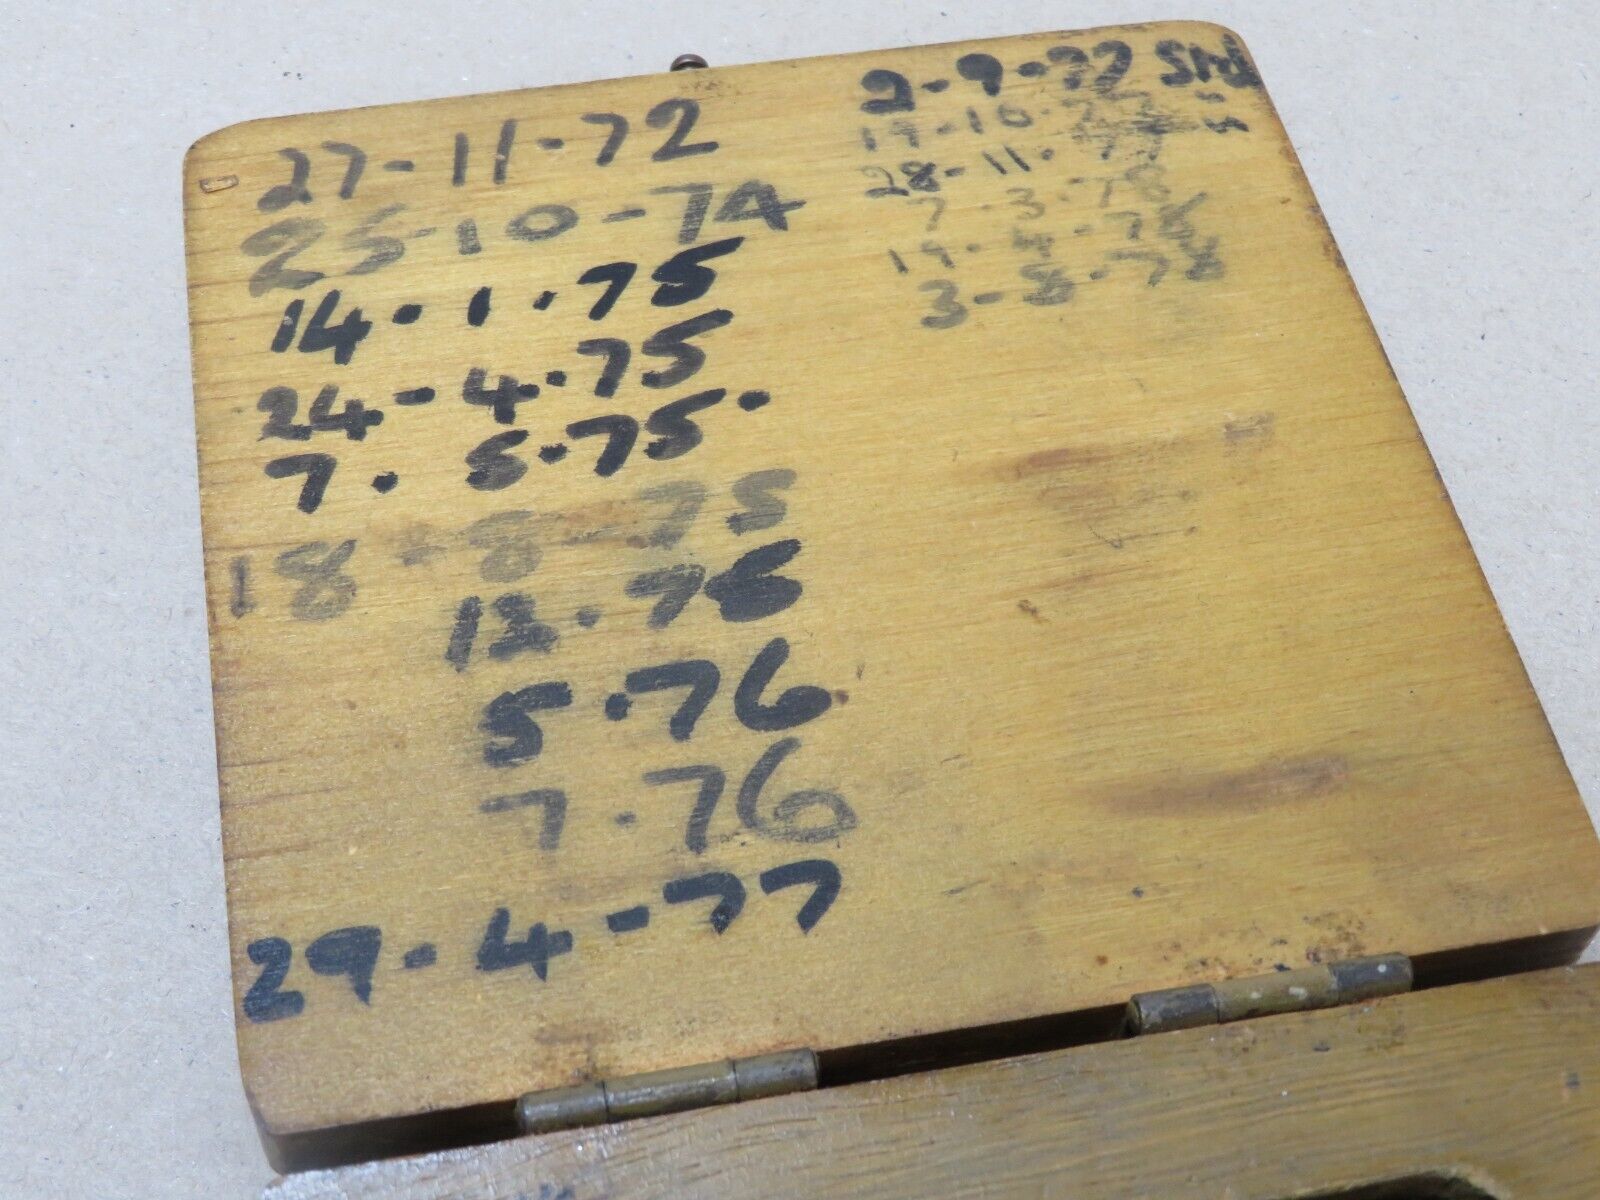 27-11-72
25-10-74
14-1.75
24-4.75
7. 5.75.
18-8-75
12.75
5.76
7.76
29-4-77
2-9-77 Std
19-10-77 "
28-11-77 "
7-3-78
19-4-78
3-8-78